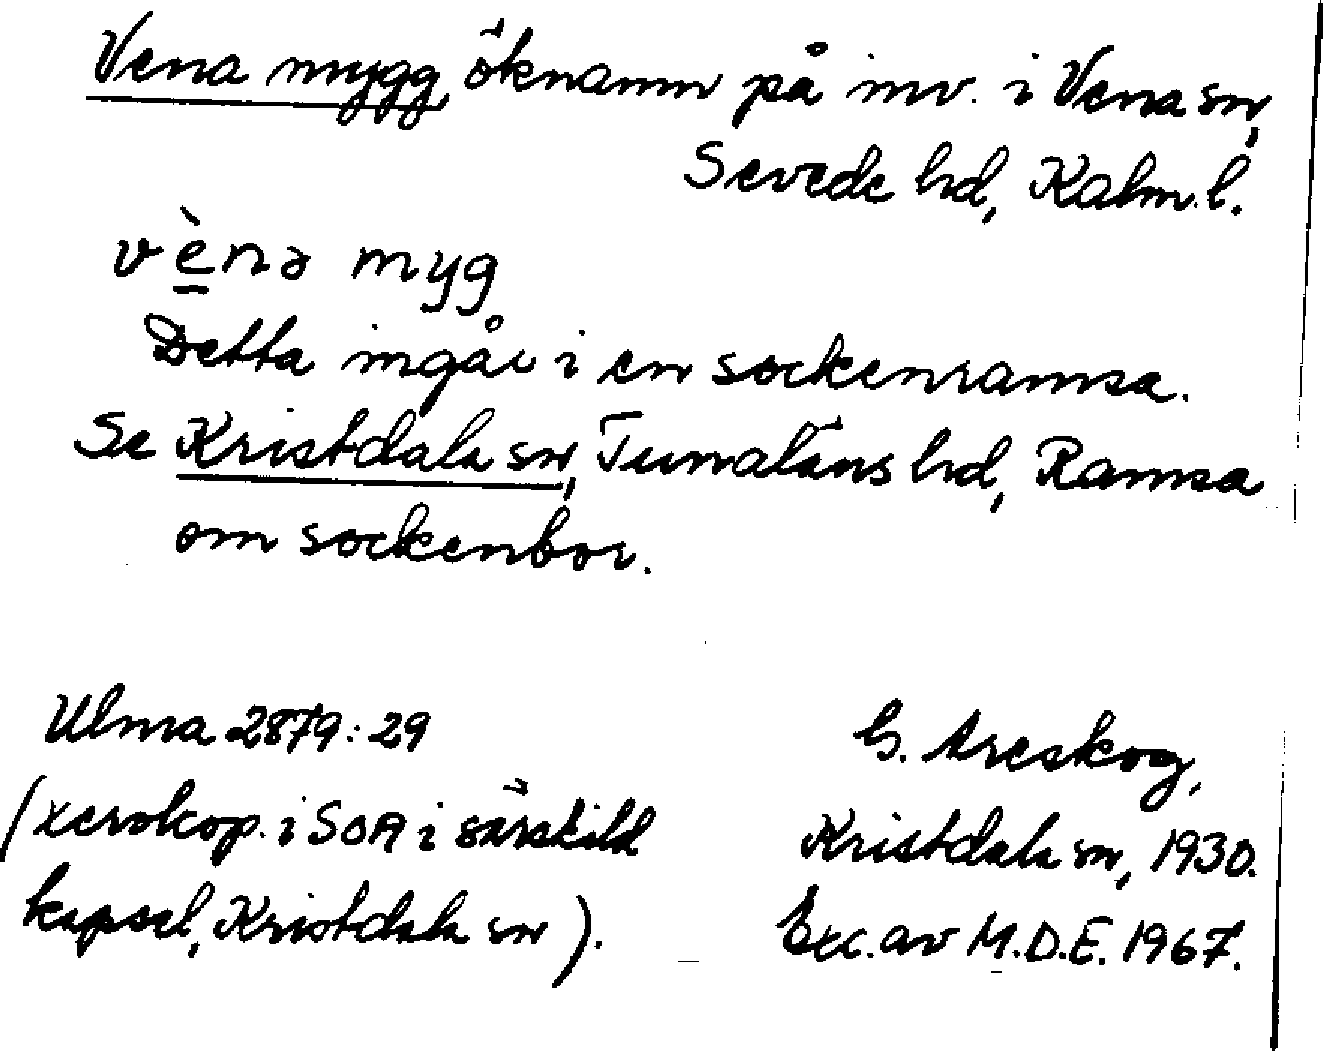 Vena mygg, öknamn på inv. i Vena sn,
Sevede hd, Kalm. l.
vènə myg
Detta ingår i en sockenramsa.
Se Kristdala sn, Tunaläns hd, Ramsa
om sockenbor.
Ulma 2879:29
(xerokop. i SOA i särskild
kapsel, Kristdala sn).
G. Areskog,
Kristdala sn, 1930.
Exc. av M.D.E. 1967.